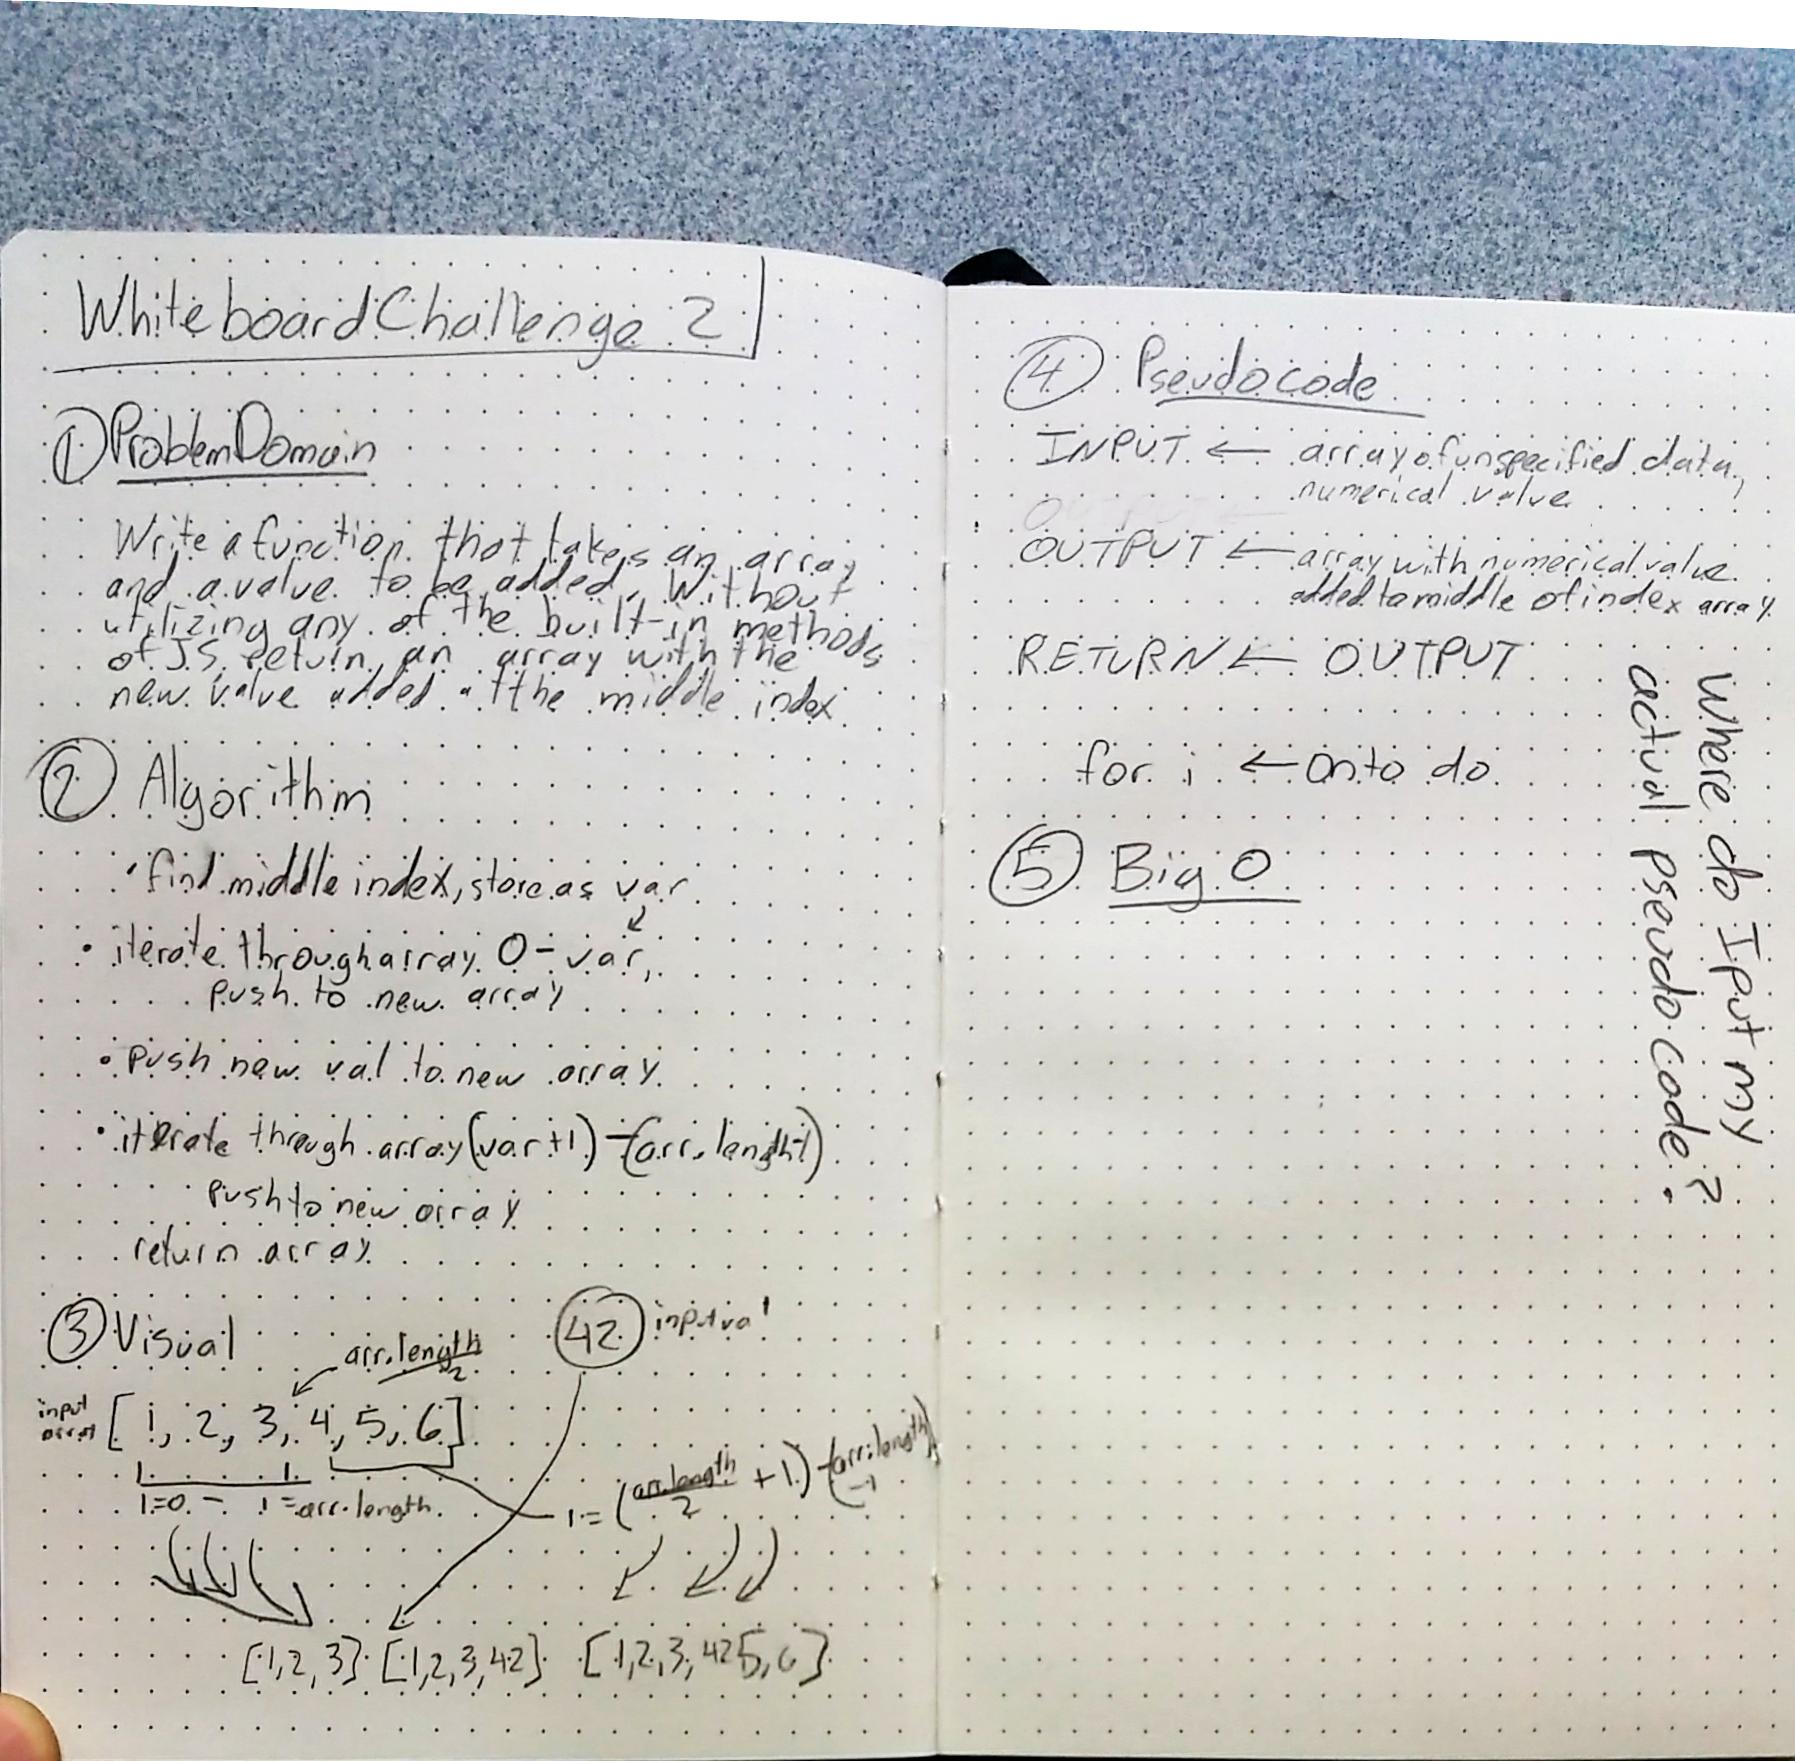 Whiteboard Challenge 2
① Problem Domain
Write a function that takes an array
and a value to be added. Without
utilizing any of the built-in methods
of JS, return an array with the
new value added at the middle index
② Algorithm
• find middle index, store as var
• iterate through array 0 - var,
push to new array
• push new val to new array
• iterate through array (var+1) - (arr.length-1)
push to new array
return array
③ Visual
arr.length
2
42 input val
input
array
[1, 2, 3, 4, 5, 6]
i=0 - i=arr.length
i = (arr.length/2 + 1) - (arr.length -1)
[1,2,3] [1,2,3,42] [1,2,3,42 5,6]
④ Pseudocode
INPUT ← array of unspecified data,
numerical value
OUTPUT ←
OUTPUT ← array with numerical value
added to middle of index array
RETURN ← OUTPUT
for i ← 0 n to do
⑤ Big O
Where do I put my
actual pseudo code?